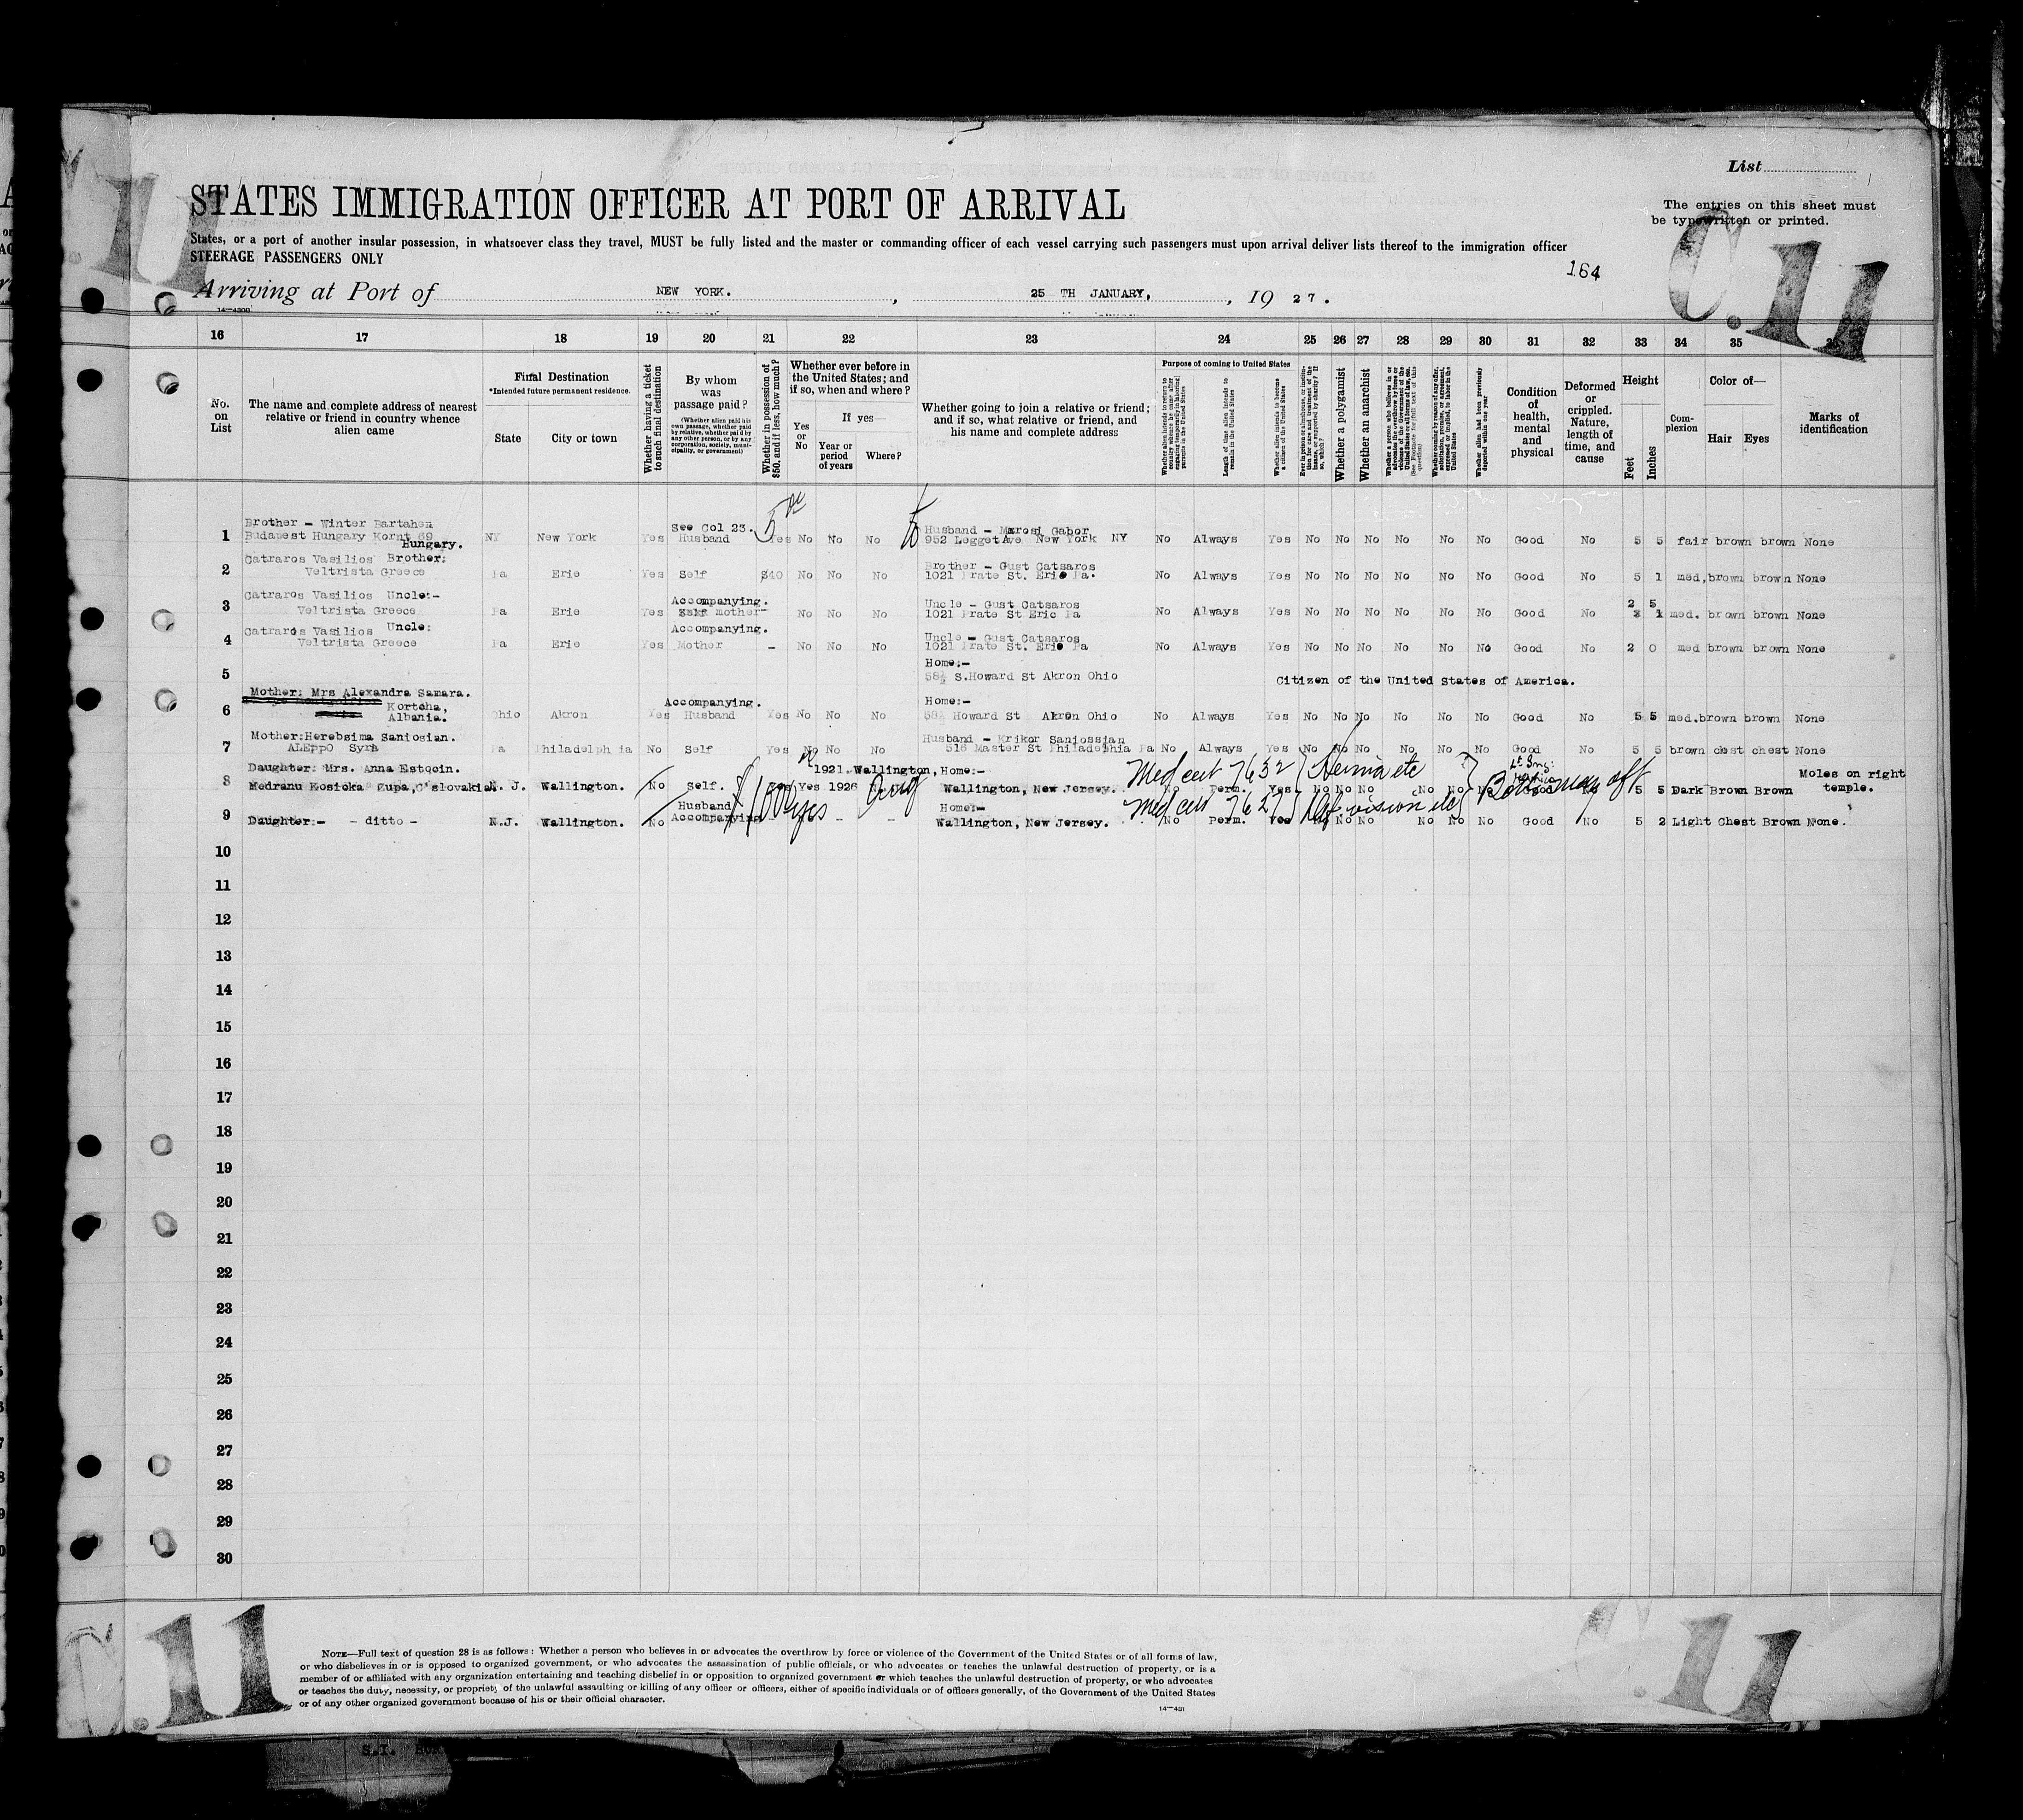 List
STATES IMMIGRATION OFFICER AT PORT OF ARRIVAL
The entries on this sheet must
be typewritten or printed.
States, or a port of another insular possession, in whatsoever class they travel, MUST be fully listed and the master or commanding officer of each vessel carrying such passengers must upon arrival deliver lists thereof to the immigration officer
STEERAGE PASSENGERS ONLY
164
C.11
Arriving at Port of NEW YORK. , 25 TH JANUARY, , 19 27.
16 17 18 19 20 21 22 23 24 25 26 27 28 29 30 31 32 33 34 35
No. on List
The name and complete address of nearest relative or friend in country whence alien came
Final Destination
*Intended future permanent residence.
State
City or town
Whether having a ticket to such final destination
By whom was passage paid?
(Whether alien paid his own passage, whether paid by relative, whether paid by any other person, or by any corporation, society, municipality, or government)
Whether in possession of $50, and if less, how much?
Whether ever before in the United States; and if so, when and where?
Yes or No
If yes—
Year or period of years
Where?
Whether going to join a relative or friend; and if so, what relative or friend, and his name and complete address
Purpose of coming to United States
Length of time alien intends to remain in the United States
Whether alien intends to become a citizen of the United States
Whether a polygamist
Whether an anarchist
Whether alien had been previously deported within one year
Condition of health, mental and physical
Deformed or crippled. Nature, length of time, and cause
Height
Feet
Inches
Complexion
Color of—
Hair
Eyes
Marks of identification
Brother - Winter Bartahen See Col 23. Husband - Marosi Gabor
1 Budapest Hungary Kornt 69 Hungary. NY New York Yes Husband Yes No No No 952 Legget Ave New York NY No Always Yes No No No No No No Good No 5 5 fair brown brown None
Catraros Vasilios Brother: Brother - Gust Catsaros
2 Veltrista Greece Pa Erie Yes Self $40 No No No 1021 Prate St. Erie Pa. No Always Yes No No No No No No Good No 5 1 med. brown brown None
Catraros Vasilios Uncle:- Accompanying. Uncle - Gust Catsaros 2 5
3 Veltrista Greece Pa Erie Yes mother- No No No 1021 Prate St Erie Pa No Always Yes No No No No No No Good No med. brown brown None
Catraros Vasilios Uncle: Accompanying. Uncle - Gust Catsaros
4 Veltrista Greece Pa Erie Yes Mother - No No No 1021 Prate St. Erie Pa No Always Yes No No No No No No Good No 2 0 med brown brown None
Home:-
5 58½ S.Howard St Akron Ohio Citizen of the United States of America.
Mother: Mrs Alexandra Samara. Accompanying. Home:-
6 Kortcha, Albania. Ohio Akron Yes Husband Yes No No No 58½ Howard St Akron Ohio No Always Yes No No No No No No Good No 5 5 med. brown brown None
Mother: Herebsima Saniosian. Husband - Krikor Saniossian
7 ALEPPO Syra Pa Philadelphia No Self Yes No No No 516 Master St Philadelphia Pa No Always Yes No No No No No No Good No 5 5 brown chest chest None
Daughter: Mrs. Anna Estocin. 1921 Wallington, Home:- Med cert 7632 Hernia etc Moles on right
8 Medranu Kosicka Fupa, C'slovakia N. J. Wallington. No Self. Yes 1926 Wallington, New Jersey. No Perm. Yes No No No No No No Good 5 5 Dark Brown Brown temple.
Husband Home:- Med cert 7627 Def vision etc
9 Daughter:- - ditto - N.J. Wallington. No Accompanying - - - Wallington, New Jersey. No Perm. Yes No No No No No No Good No 5 2 Light Chest Brown None.
$1000 yes
10
11
12
13
14
15
16
17
18
19
20
21
22
23
24
25
26
27
28
29
30
C.11
NOTE—Full text of question 28 is as follows: Whether a person who believes in or advocates the overthrow by force or violence of the Government of the United States or of all forms of law,
or who disbelieves in or is opposed to organized government, or who advocates the assassination of public officials, or who advocates or teaches the unlawful destruction of property, or is a
member of or affiliated with any organization entertaining and teaching disbelief in or opposition to organized government or which teaches the unlawful destruction of property, or who advocates
or teaches the duty, necessity, or propriety of the unlawful assaulting or killing of any officer or officers, either of specific individuals or of officers generally, of the Government of the United States
or of any other organized government because of his or their official character.
14—431
C.11
S.I.